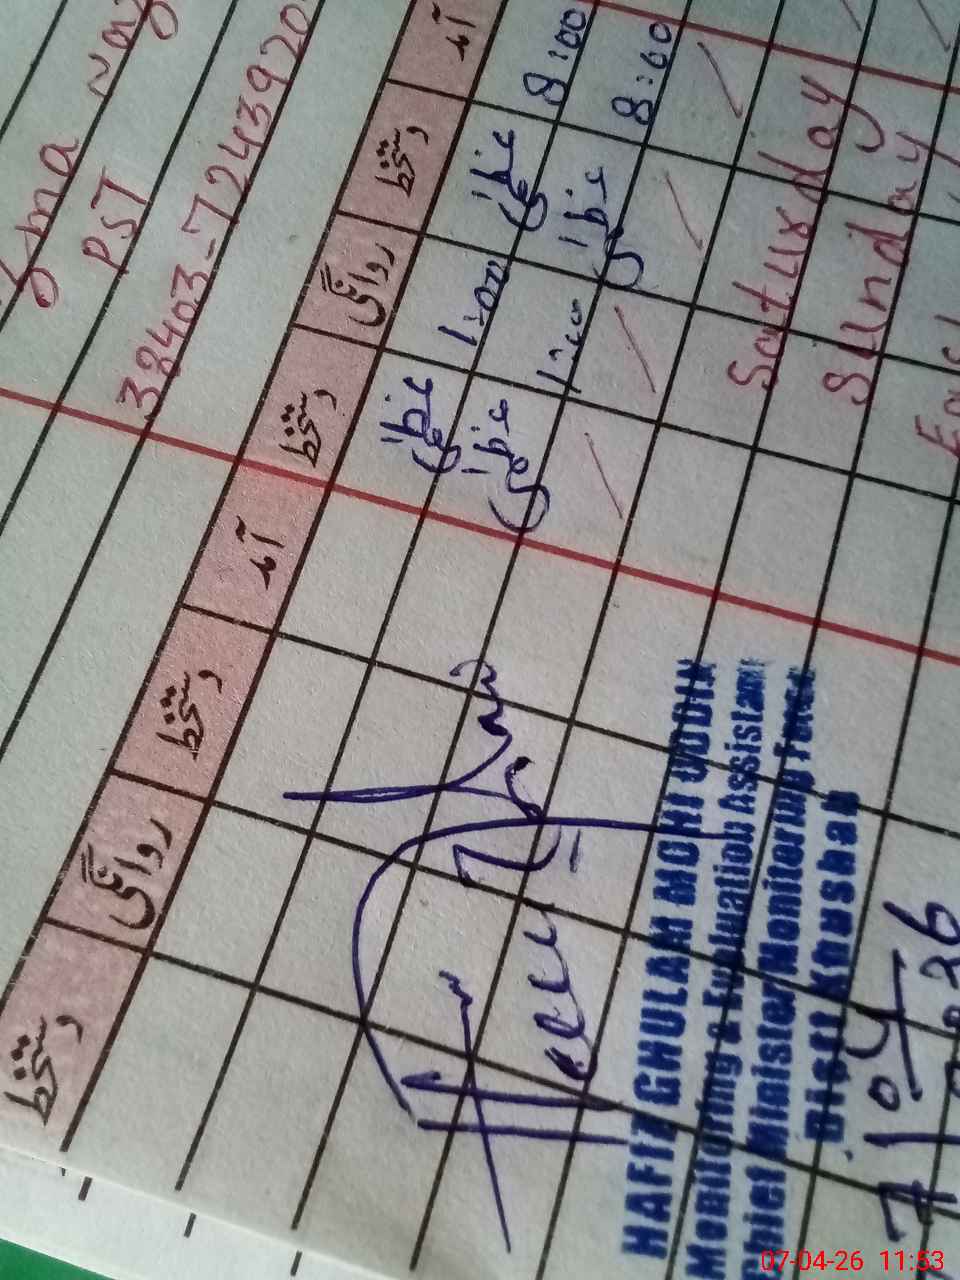 PST
38403-7243920
آمد دستخط روانگی دستخط آمد دستخط روانگی دستخط
8:00 عظمیٰ 1:00 عظمیٰ
8:00 عظمیٰ 1:00 عظمیٰ
Saturday
Sunday
HAFIZ GHULAM MOHI UDDIN
Monitoring & Evaluation Assistant
Chief Minister Monitoring Force
Distt Khushab
7/04
2026
07-04-26 11:53